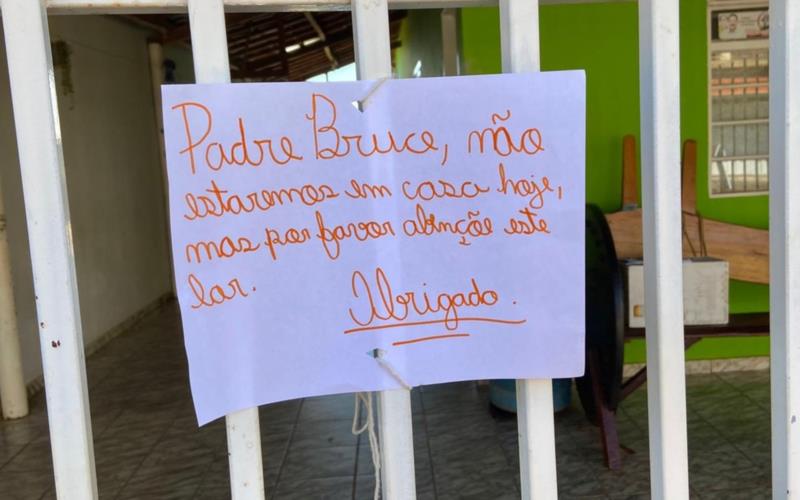 Padre Bruce, não
estaremos em casa hoje,
mas por favor abinçõe este
lar.
Obrigado.